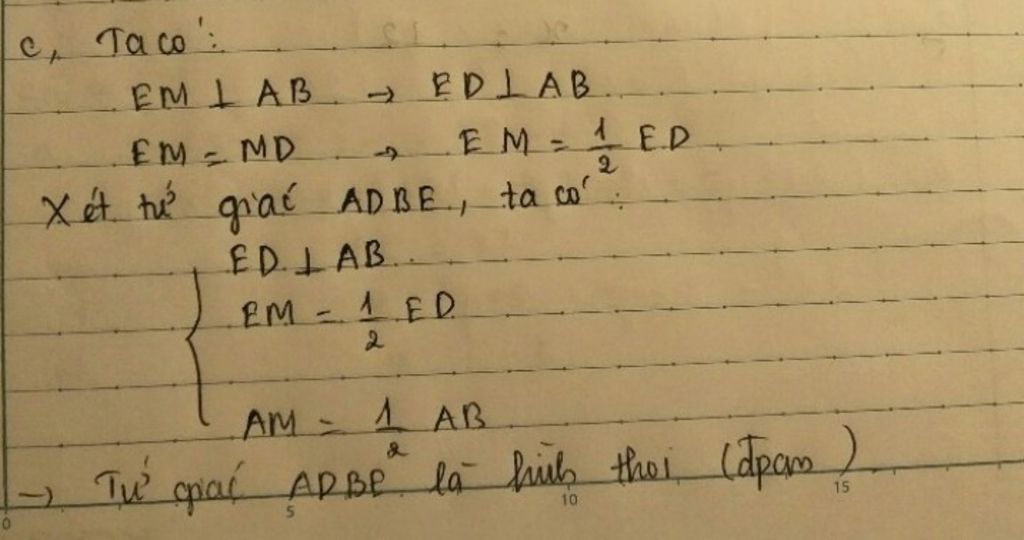 c, Ta có:
EM ⊥ AB → ED ⊥ AB
EM = MD → EM = 1/2 ED
Xét tứ giác ADBE, ta có:
ED ⊥ AB
EM = 1/2 ED
AM = 1/2 AB
→ Tứ giác ADBE là hình thoi (đpcm)
0 5 10 15